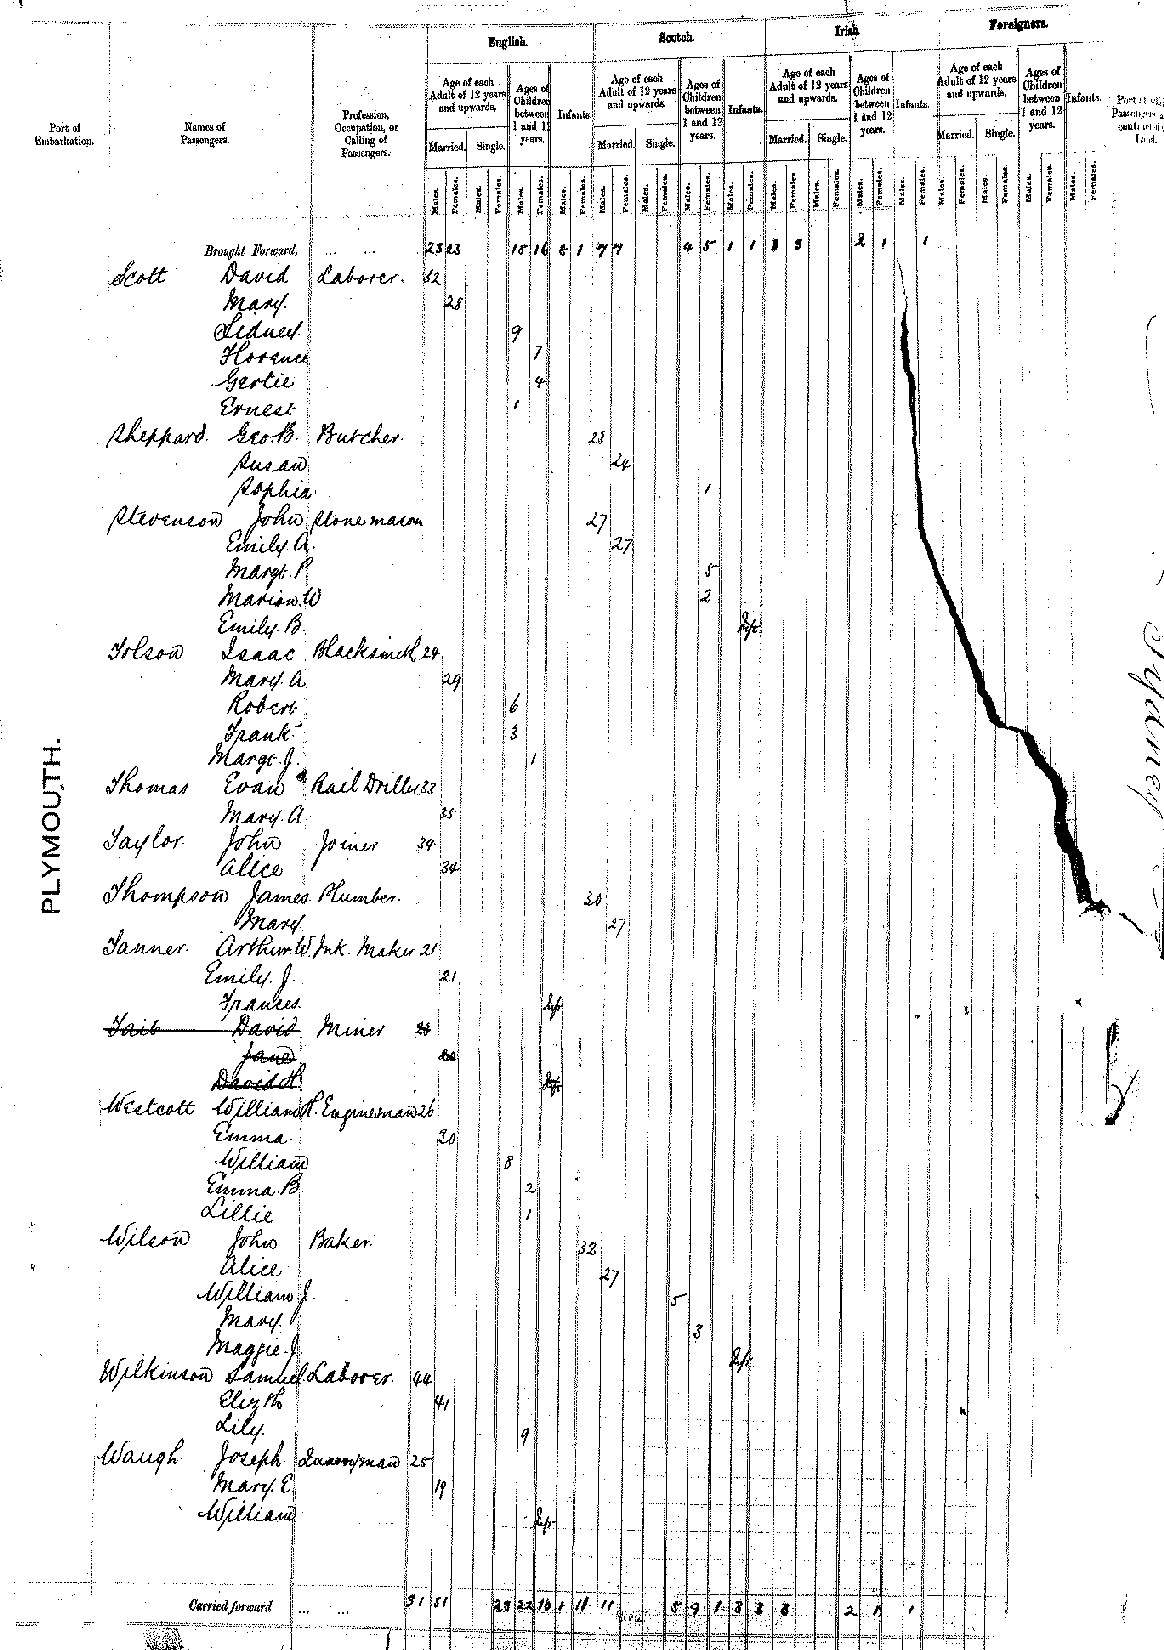 English. Scotch. Irish. Foreigners.
Port of Embarkation. Names of Passengers. Profession, Occupation, or Calling of Passengers. Age of each Adult of 12 years and upwards. Ages of Children between 1 and 12 years. Infants. Age of each Adult of 12 years and upwards. Ages of Children between 1 and 12 years. Infants. Age of each Adult of 12 years and upwards. Ages of Children between 1 and 12 years. Infants. Age of each Adult of 12 years and upwards. Ages of Children between 1 and 12 years. Infants. Port at
Married. Single. Married. Single. Married. Single. Married. Single.
Males. Females. Males. Females. Males. Females. Males. Females. Males. Females. Males. Females. Males. Females. Males. Females. Males. Females. Males. Females. Males. Females. Males. Females. Males. Females. Males. Females. Males. Females. Males. Females.
Brought Forward, ... ... 23 23 15 16 1 7 7 4 5 1 1 3 3 2 1 1
Scott David Laborer. 32
Mary. 28
Sidney. 9
Florence 7
Gertie 4
Ernest 1
Sheppard. Geo. B. Butcher. 28
Susan 24
Sophia 1
Stevenson John Stonemason 27
Emily A. 27
Margt. P. 5
Marion W 2
Emily. B. Inft
Tolson Isaac Blacksmith 29
Mary. A. 29
Robert 6
Frank 3
Margt. J. 1
Thomas Evan Rail Driller 33
Mary. A. 35
Taylor. John Joiner 34
Alice 34
Thompson James Plumber. 30
Mary. 27
Tanner. Arthur W. Ink. Maker 21
Emily. J. 21
Frances. Inft
Tait David Miner
Jane
David H. Inft
Westcott William H. Engineman 26
Emma 30
William 8
Emma B 2
Lillie 1
Wilson John Baker. 32
Alice 27
William J. 5
Mary. 3
Maggie J. Inft
Wilkinson Samuel Laborer. 44
Elizth 41
Lily. 9
Waugh Joseph Quarryman 25
Mary. E. 19
William Inft
Carried forward ... ... 31 31 22 11 11 5 9 1 3 3 3 2 1 1
PLYMOUTH.
Sydney